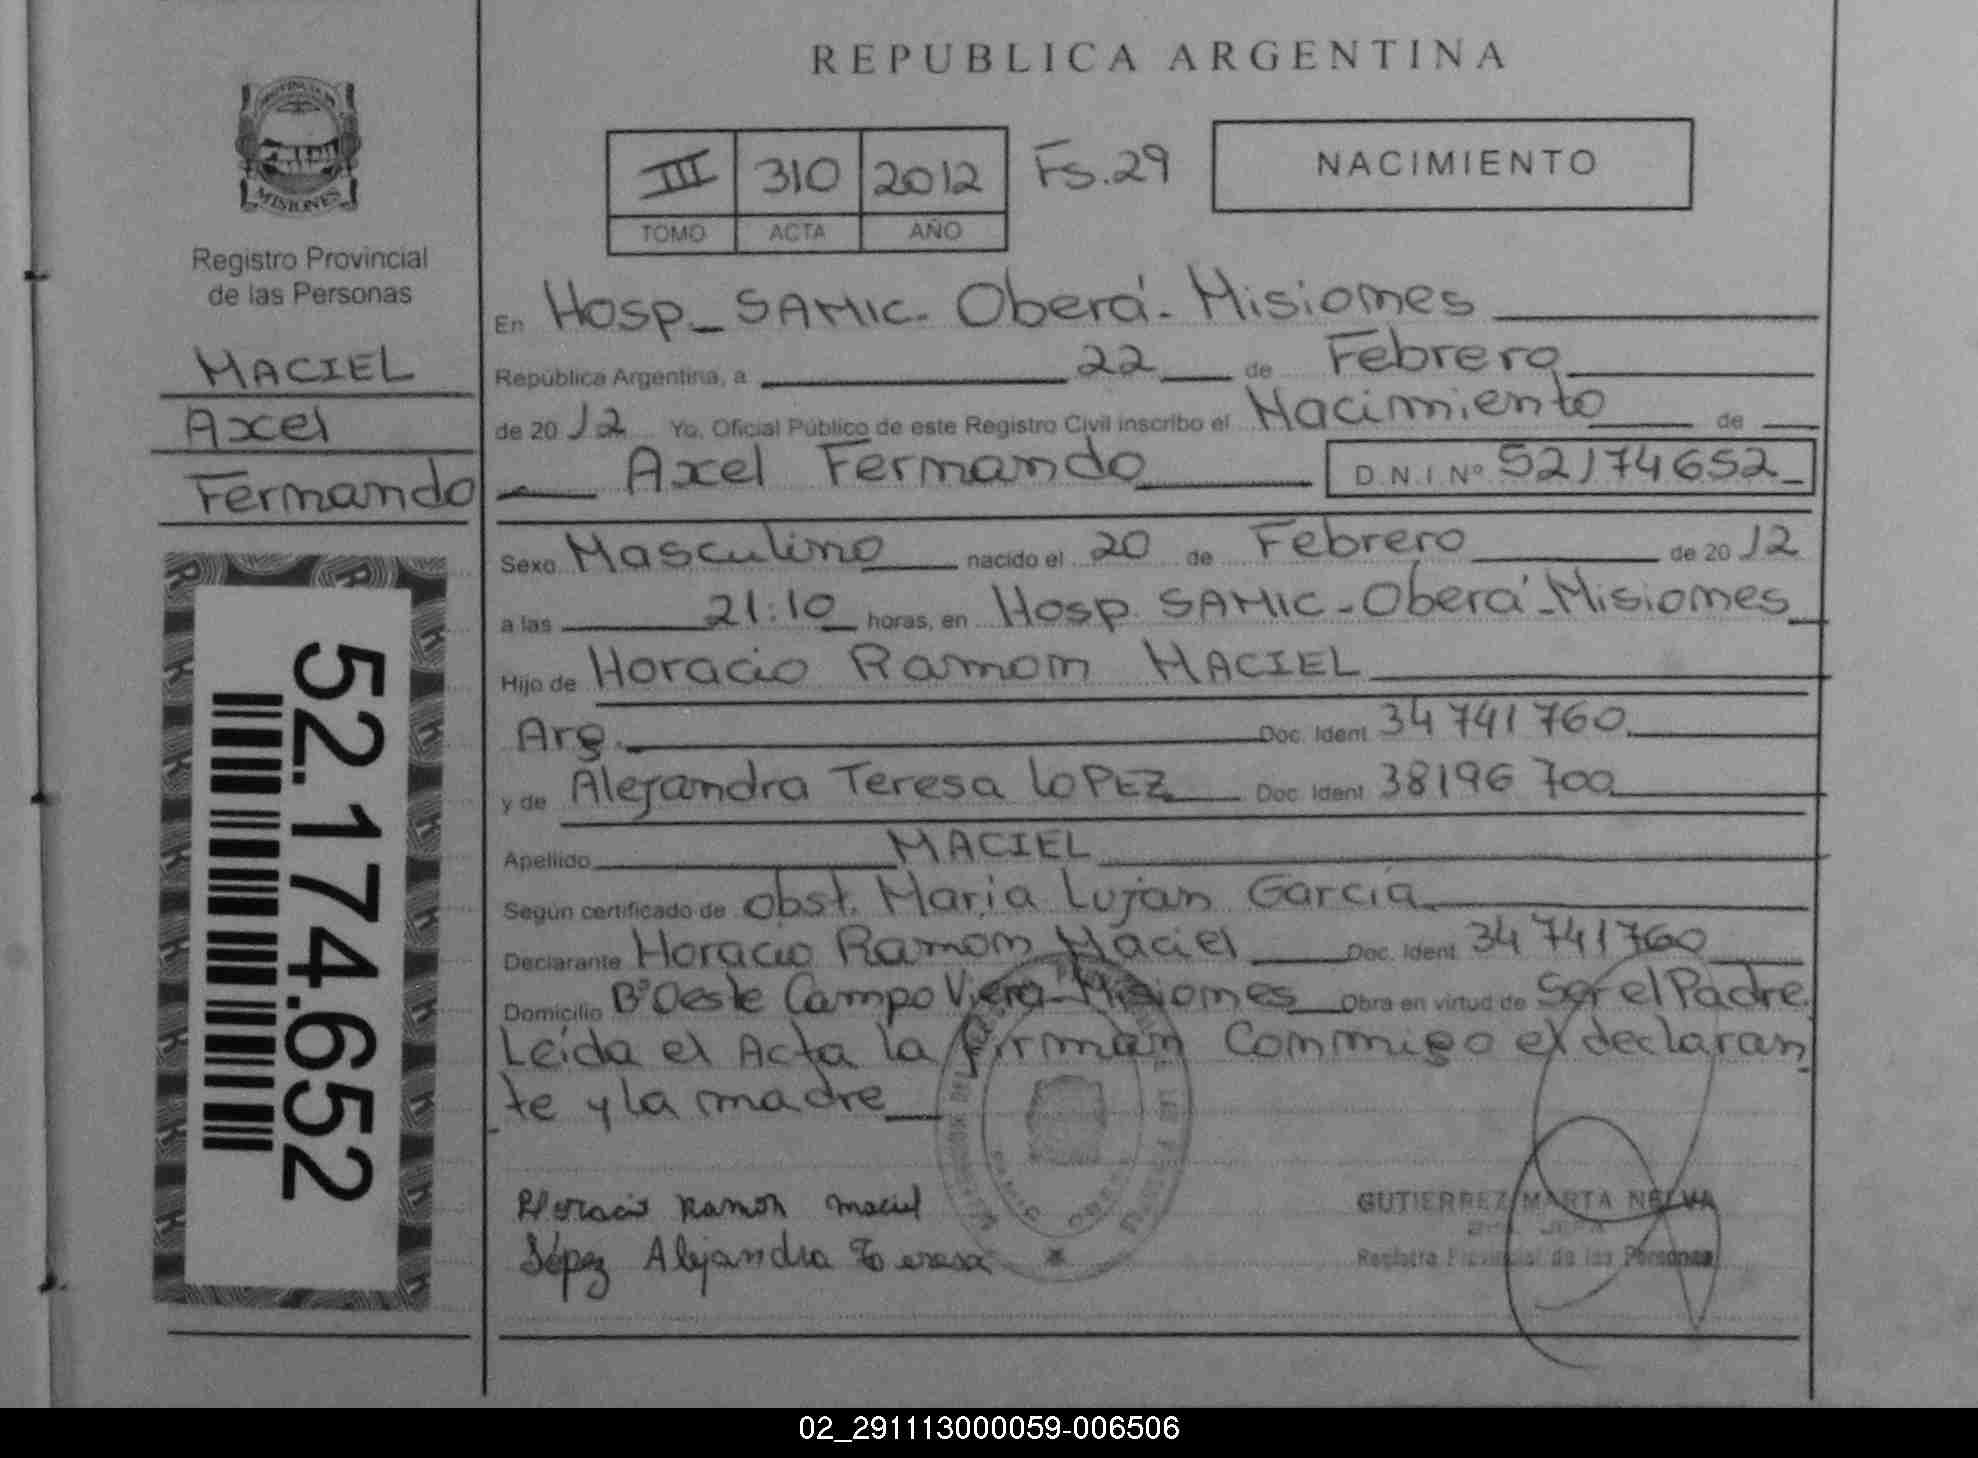 REPUBLICA ARGENTINA
PROVINCIA DE
MISIONES
Registro Provincial
de las Personas
MACIEL
Axel
Fernando
52.174.652
III 310 2012 Fs.29
TOMO ACTA AÑO
NACIMIENTO
En Hosp_ SAMIC. Oberá - Misiones
República Argentina, a 22 de Febrero
de 2012 Yo, Oficial Público de este Registro Civil inscribo el Nacimiento de
Axel Fernando D.N.I. Nº 52174652
Sexo Masculino nacido el 20 de Febrero de 2012
a las 21:10 horas, en Hosp. SAMIC - Oberá - Misiones
Hijo de Horacio Ramon MACIEL
Arg. Doc. Ident 34 741 760
y de Alejandra Teresa LOPEZ Doc. Ident 38196 700
Apellido MACIEL
Según certificado de obst. Maria Lujan Garcia
Declarante Horacio Ramon Maciel Doc. Ident 34 741 760
Domicilio Bº Oeste Campo Viera - Misiones Obra en virtud de Ser el Padre.
Leída el Acta la firman Conmigo el declaran
te y la madre
Horacio Ramón Maciel
López Alejandra Teresa
GUTIERREZ MARTA NELVA
Registro Provincial de las Personas
02_291113000059-006506